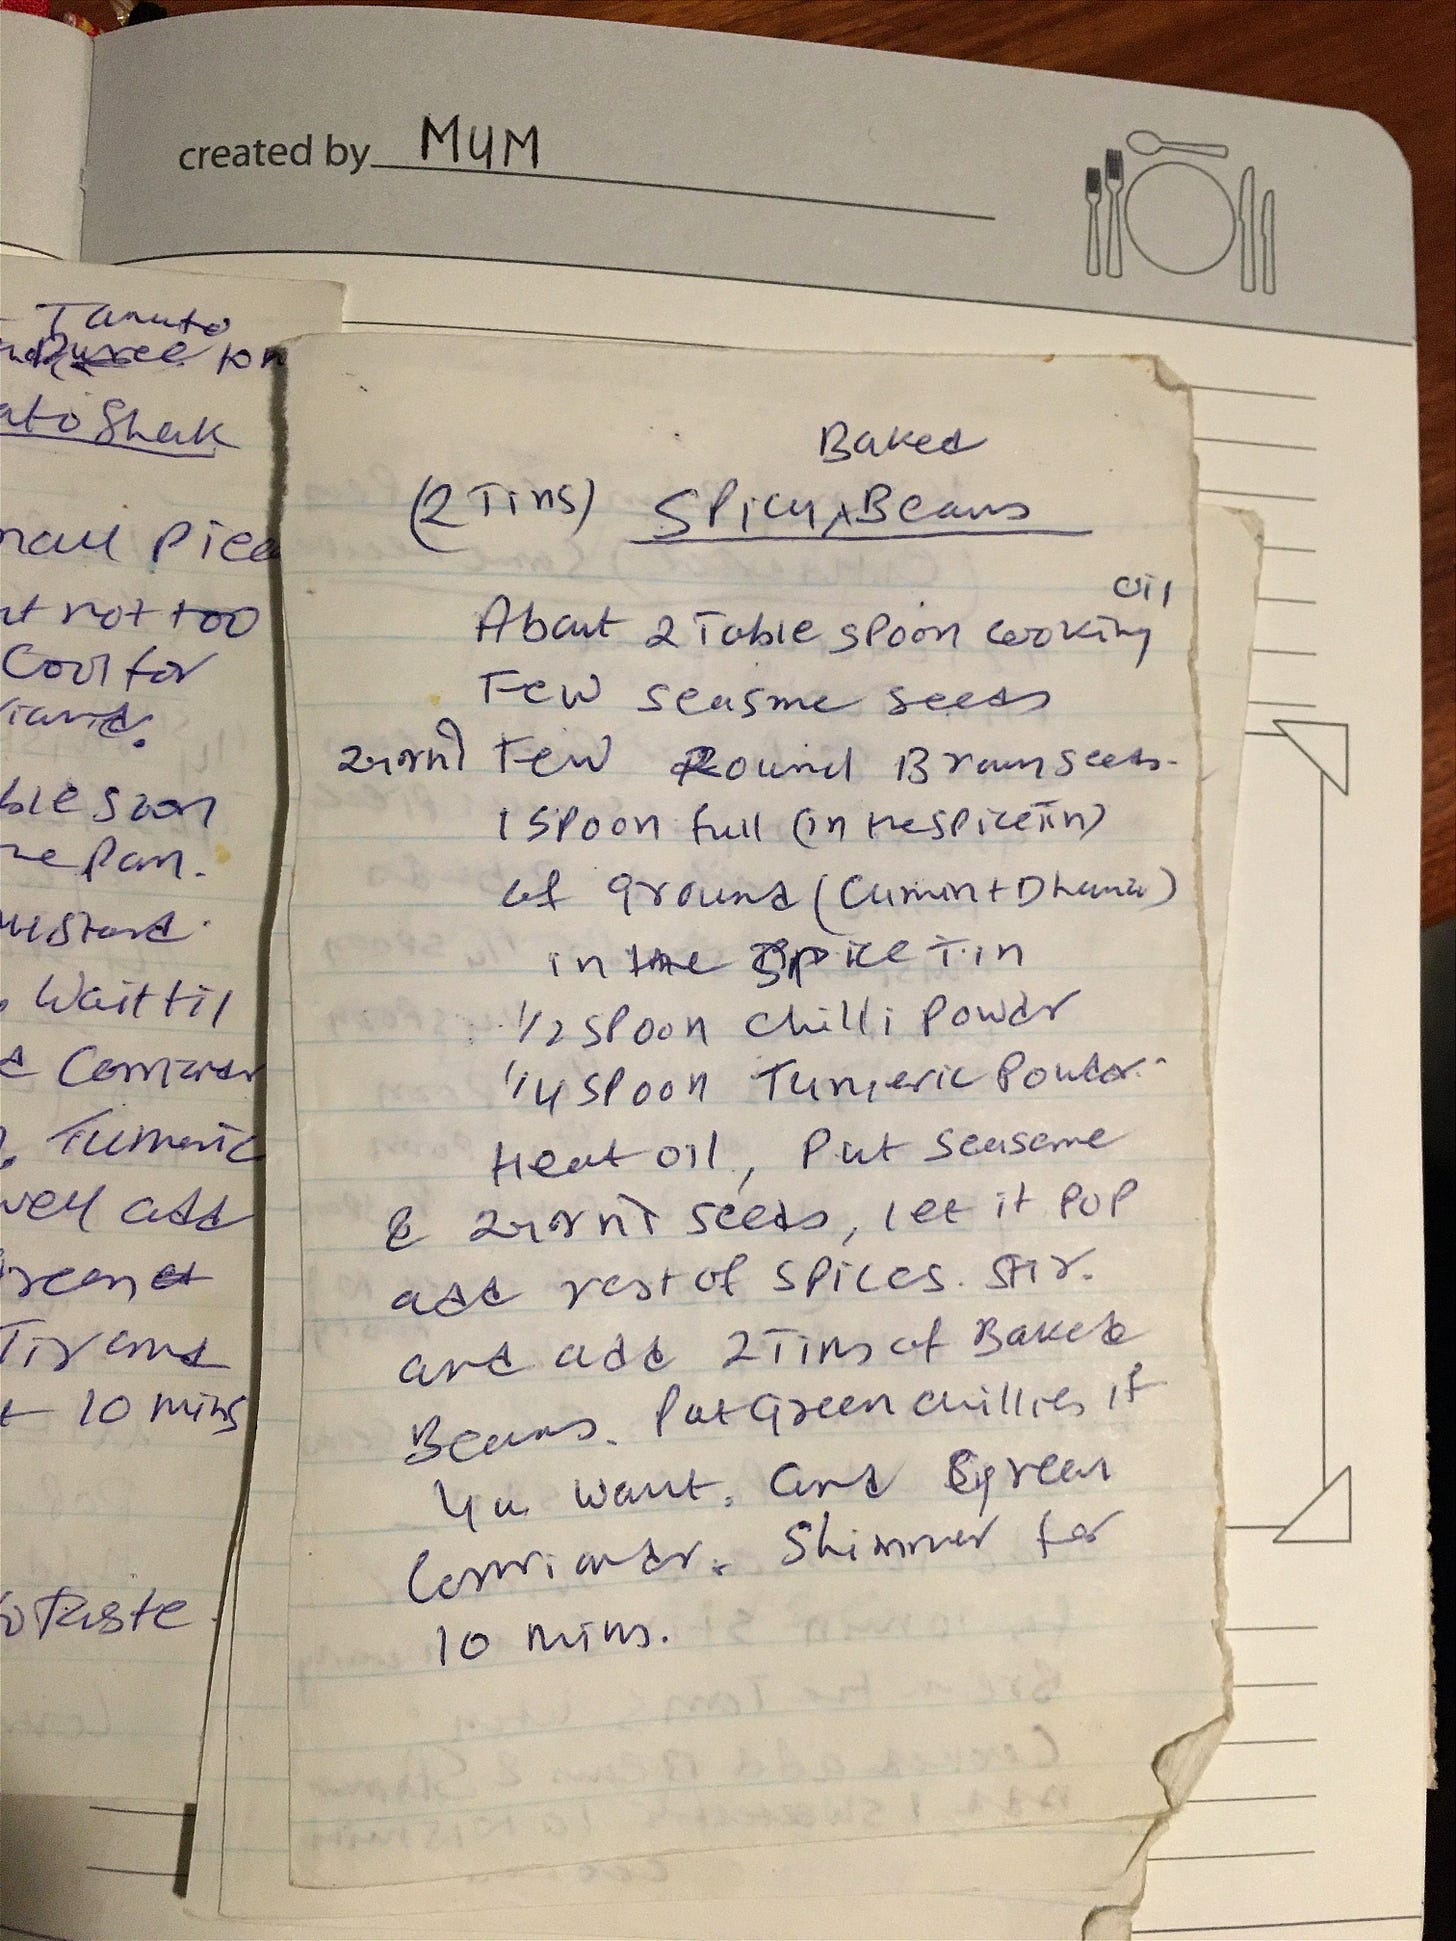 created by MUM
Tamuto
Puree 10 n
ato Shak
mall Piea
ut not too
Cool for
iand.
ble soon
he Pan.
mustard.
Wait til
& Corriandr
Tumeric
well add
Green &
Tir and
10 mins
to taste.
Baked
(2 Tins) SPicy ^ Beans
oil
About 2 Table spoon cooking
Few seasme seeds
Few Round Brown seeds.
1 spoon full (in the spice Tin)
of ground (Cumin + Dhania)
in the Spice Tin
1/2 spoon chilli Powdr
1/4 spoon Tumeric Powdar.
Heat oil, Put Seasame
& seeds, let it POP
add rest of spices. Stir.
and add 2 Tins of Baked
Beans. Put Green chillies if
yu want. and Green
Corriandr. Shimmer for
10 mins.